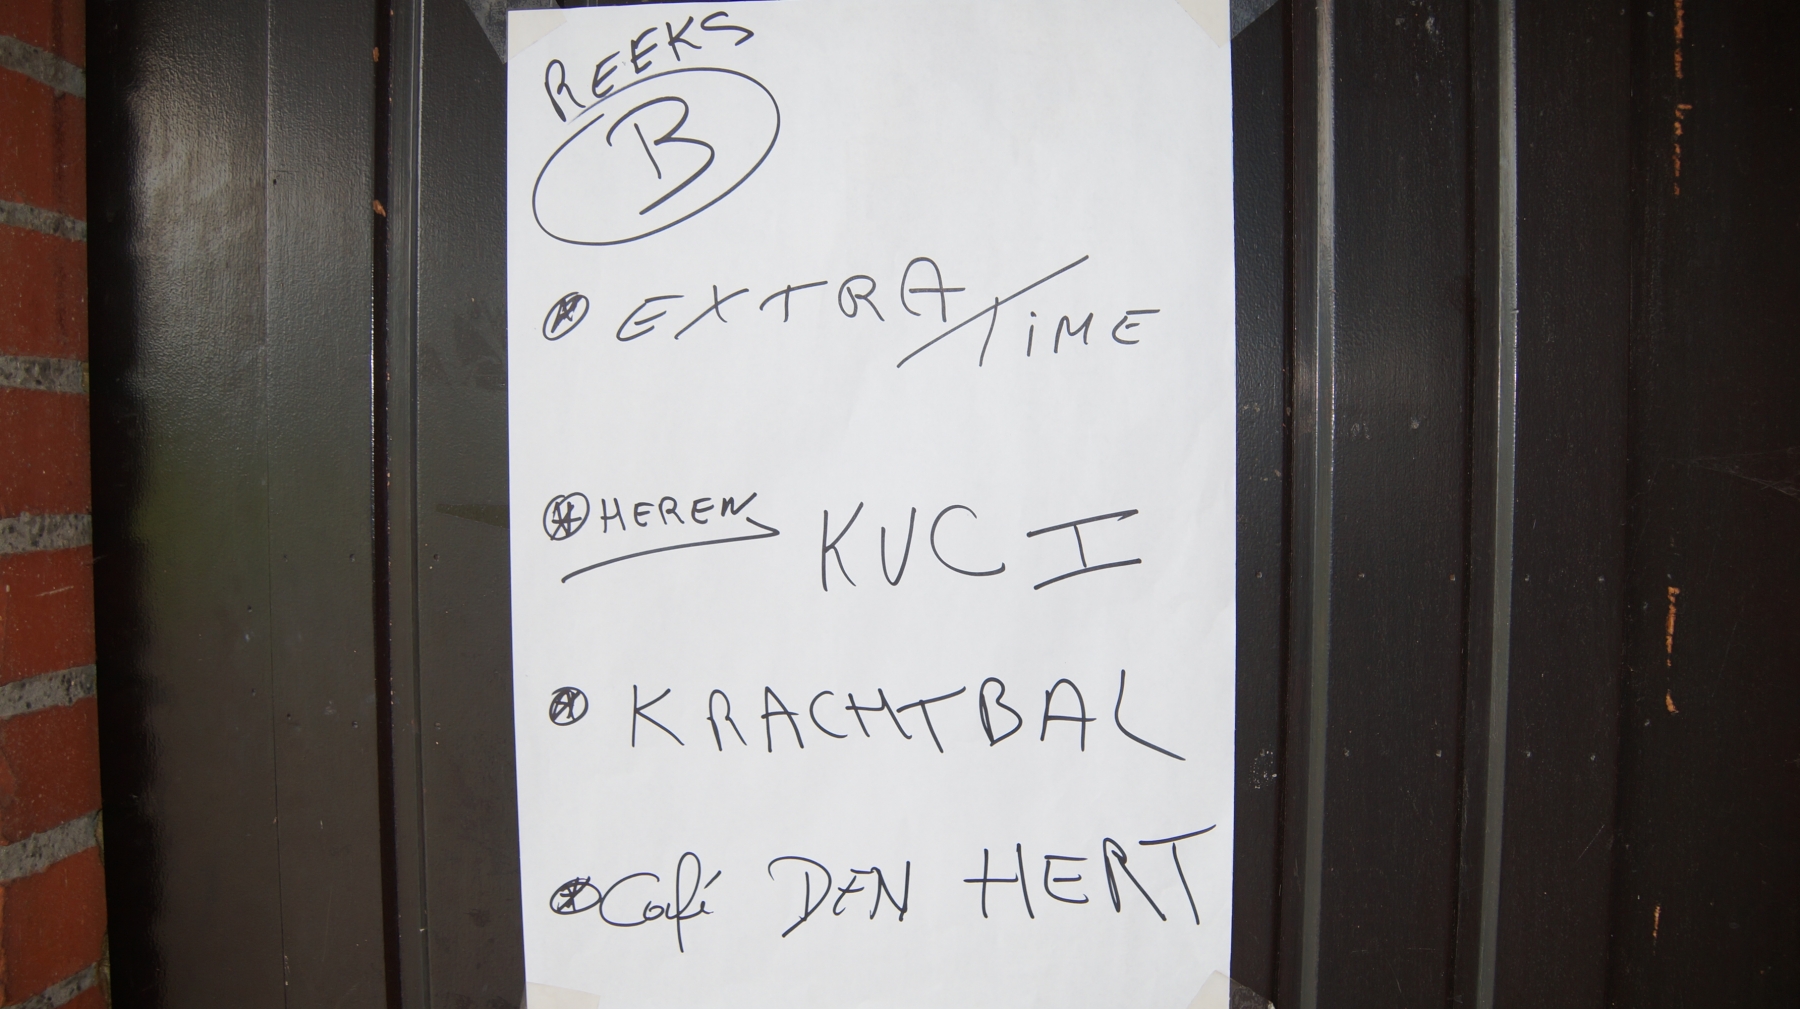 REEKS
B
EXTRA/TiME
HEREN KVC I
KRACHTBAL
Café DEN HERT